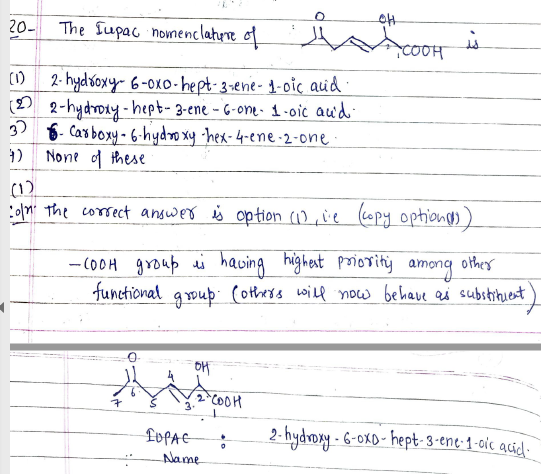 20- The Iupac nomenclature of O OH COOH is
(1) 2-hydroxy- 6-oxo-hept-3-ene-1-oic acid.
(2) 2-hydroxy-hept-3-ene-6-one-1-oic acid.
3) 6-Carboxy-6-hydroxy-hex-4-ene-2-one.
4) None of these
(1)
Soln The correct answer is option (1), i.e (copy option(1))
-COOH group is having highest priority among other
functional group. (others will now behave as substituent)
O OH
7 6 5 4 3 2 COOH
1
IUPAC : 2-hydroxy-6-oxo-hept-3-ene-1-oic acid.
Name